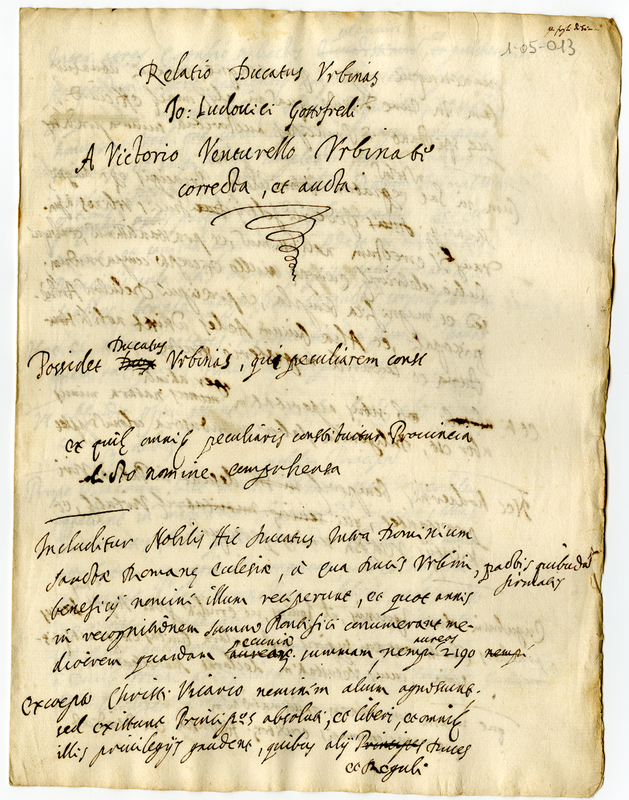 1-05-013
Relatio Ducatus Urbinas
Jo: Ludovici Gottofredi
A Victorio Venturello Urbinate
correcta, et aucta
Ducatus
Possidet Dux Urbinas, qui peculiarem const
ex quibus omnibus peculiaris constituitur Provincia
dicto nomine comprehensa
Includitur Nobilis Hic Ducatus Intra Dominium
Sanctæ Romanę Eclesiæ, à qua Duces Urbini, pactis quibusdam
firmatis
beneficij nomine illum reciperunt, et quot annis
in recognitionem summo Pontifici connumerant me
pecuniæ aureos
diocrem quandam aureorum summam, nempe 2190 nempe
excepto Christi Vicario neminem alium agnoscunt.
sed existunt Principes absoluti, et liberi, et omnibus
illis privilegijs gaudent, quibus alij Principes Duces
et Reguli